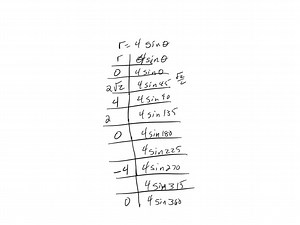 r = 4 sinθ
r | 4sinθ
0 | 4 sin0
2√2 | 4 sin45 √2/2
4 | 4 sin 90
2 | 4 sin 135
0 | 4 sin 180
4 sin 225
-4 | 4 sin 270
4 sin 315
0 | 4 sin 360